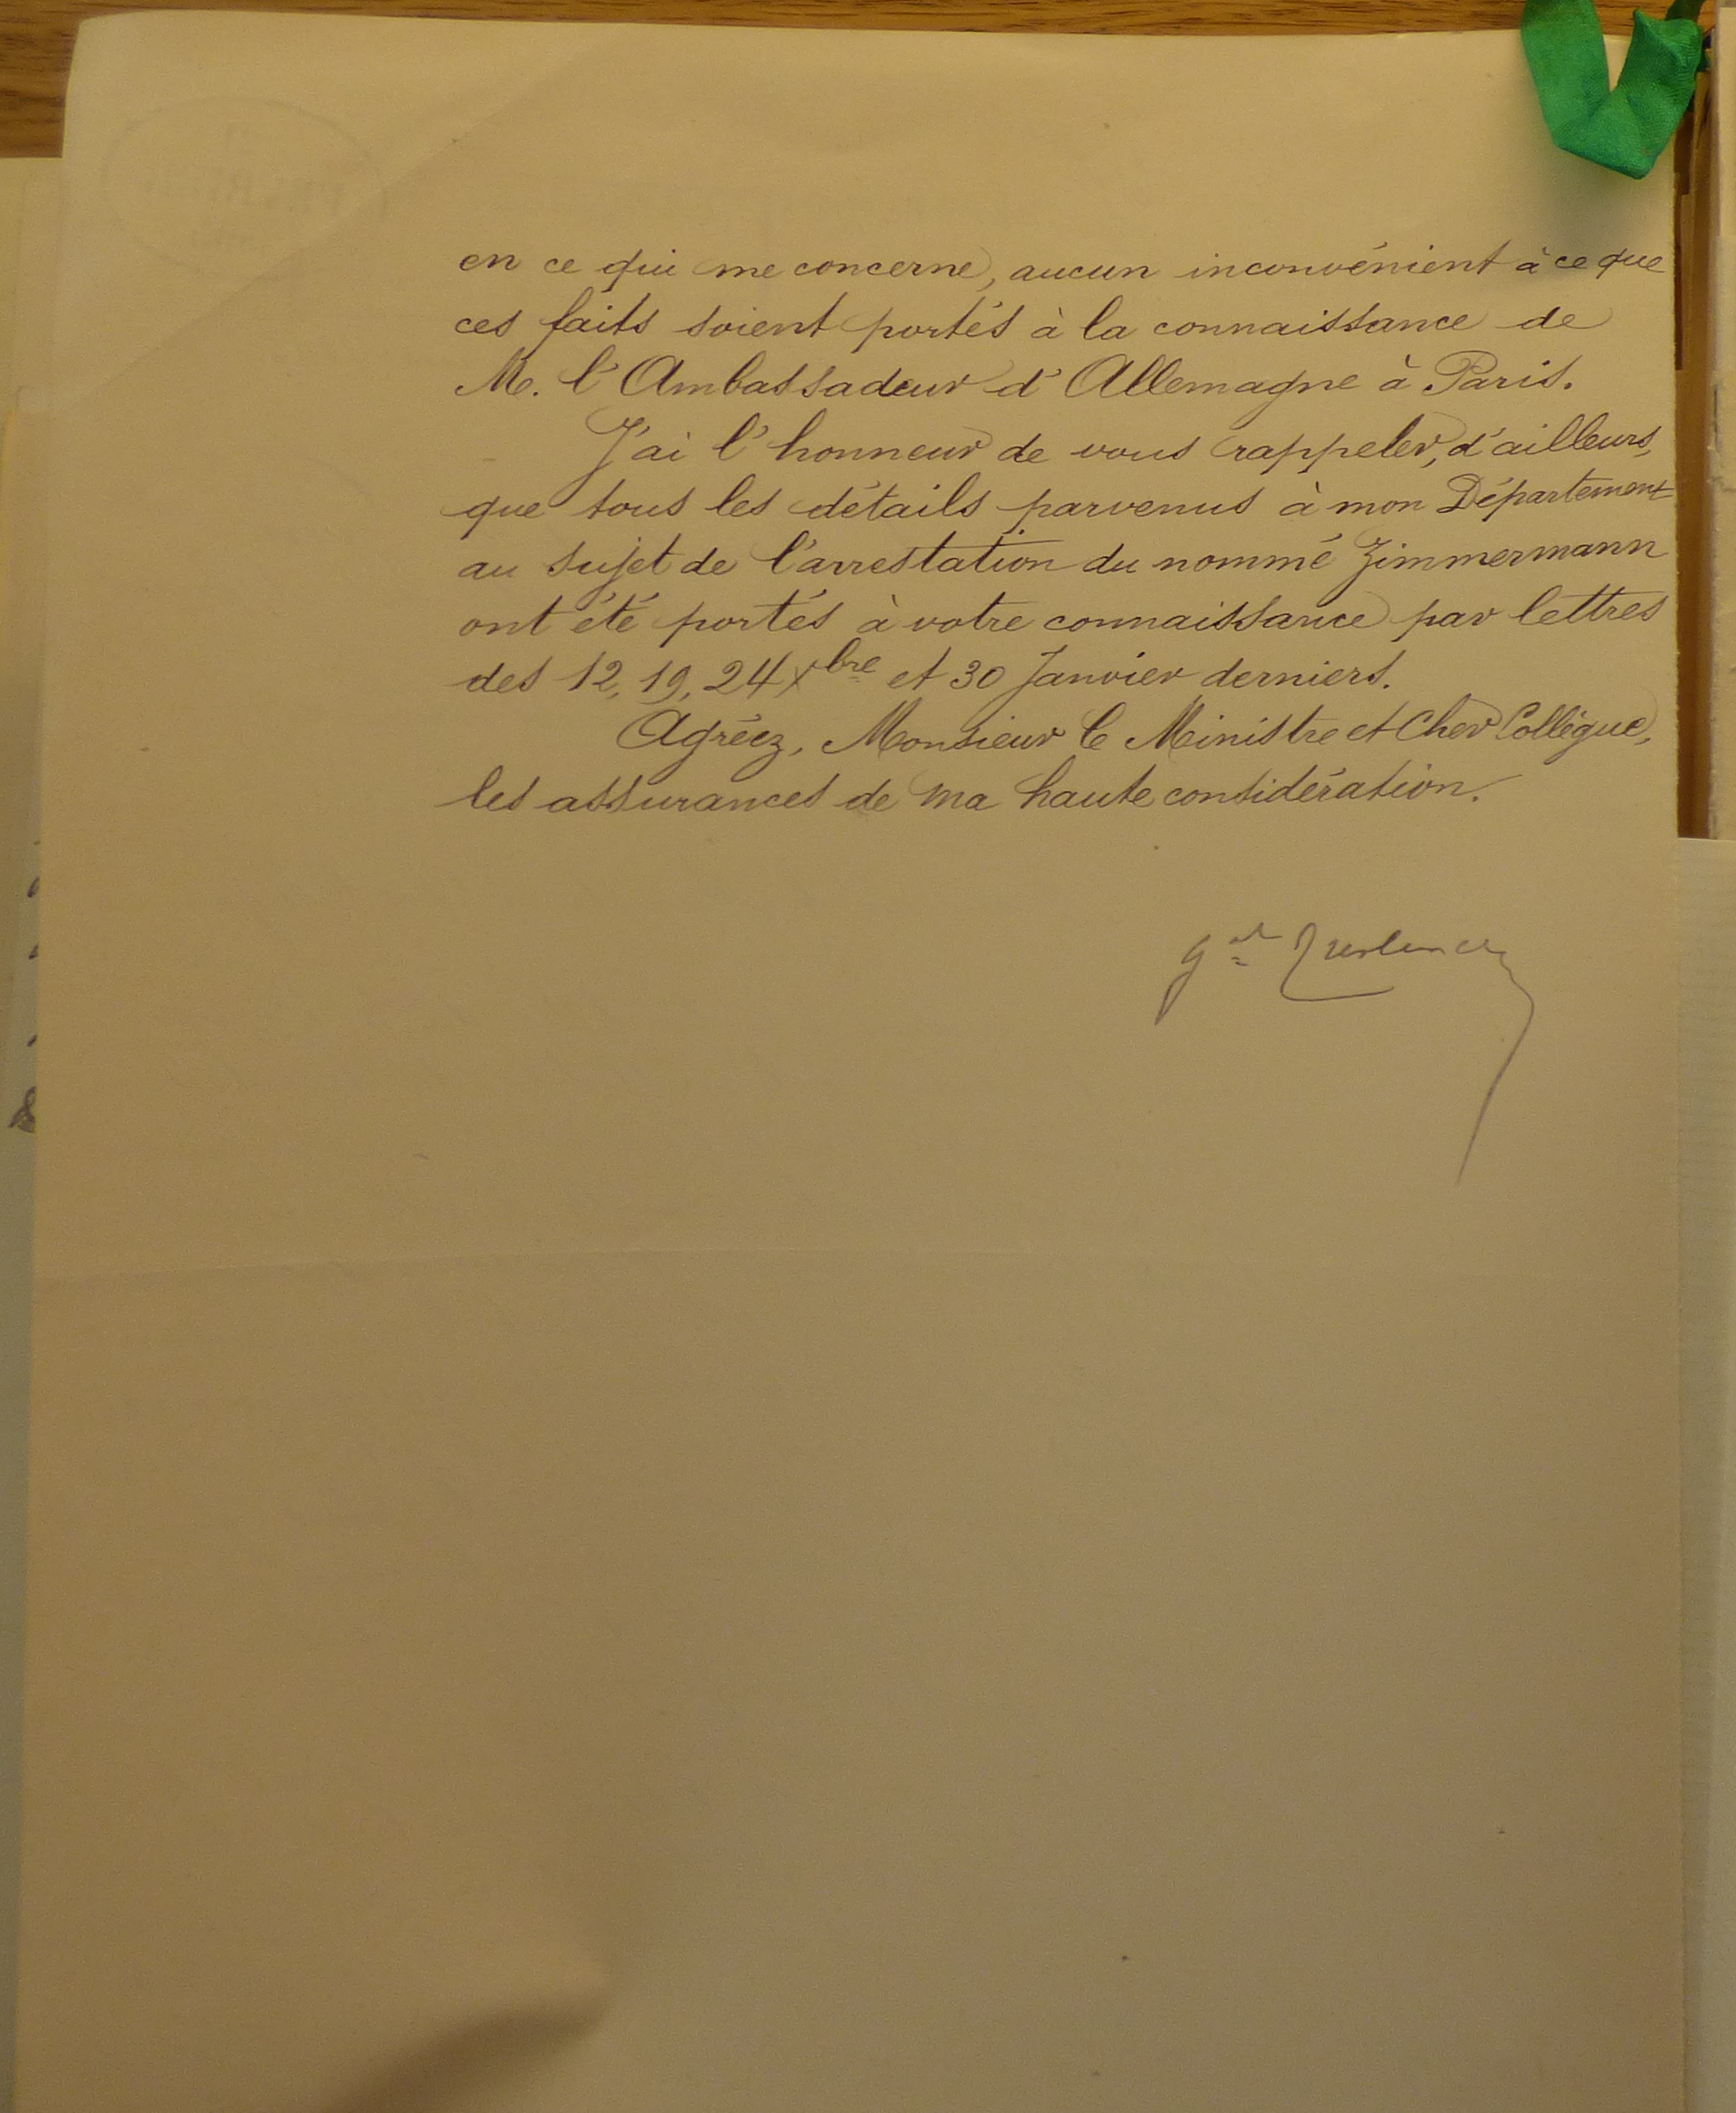 en ce qui me concerne, aucun inconvénient à ce que
ces faits soient portés à la connaissance de
M. l'Ambassadeur d'Allemagne à Paris.
J'ai l'honneur de vous rappeler, d'ailleurs,
que tous les détails parvenus à mon Département
au sujet de l'arrestation du nommé Zimmermann
ont été portés à votre connaissance par lettres
des 12, 19, 24 Xbre et 30 Janvier derniers.
Agréez, Monsieur le Ministre et Cher Collègue,
les assurances de ma haute considération.
gal